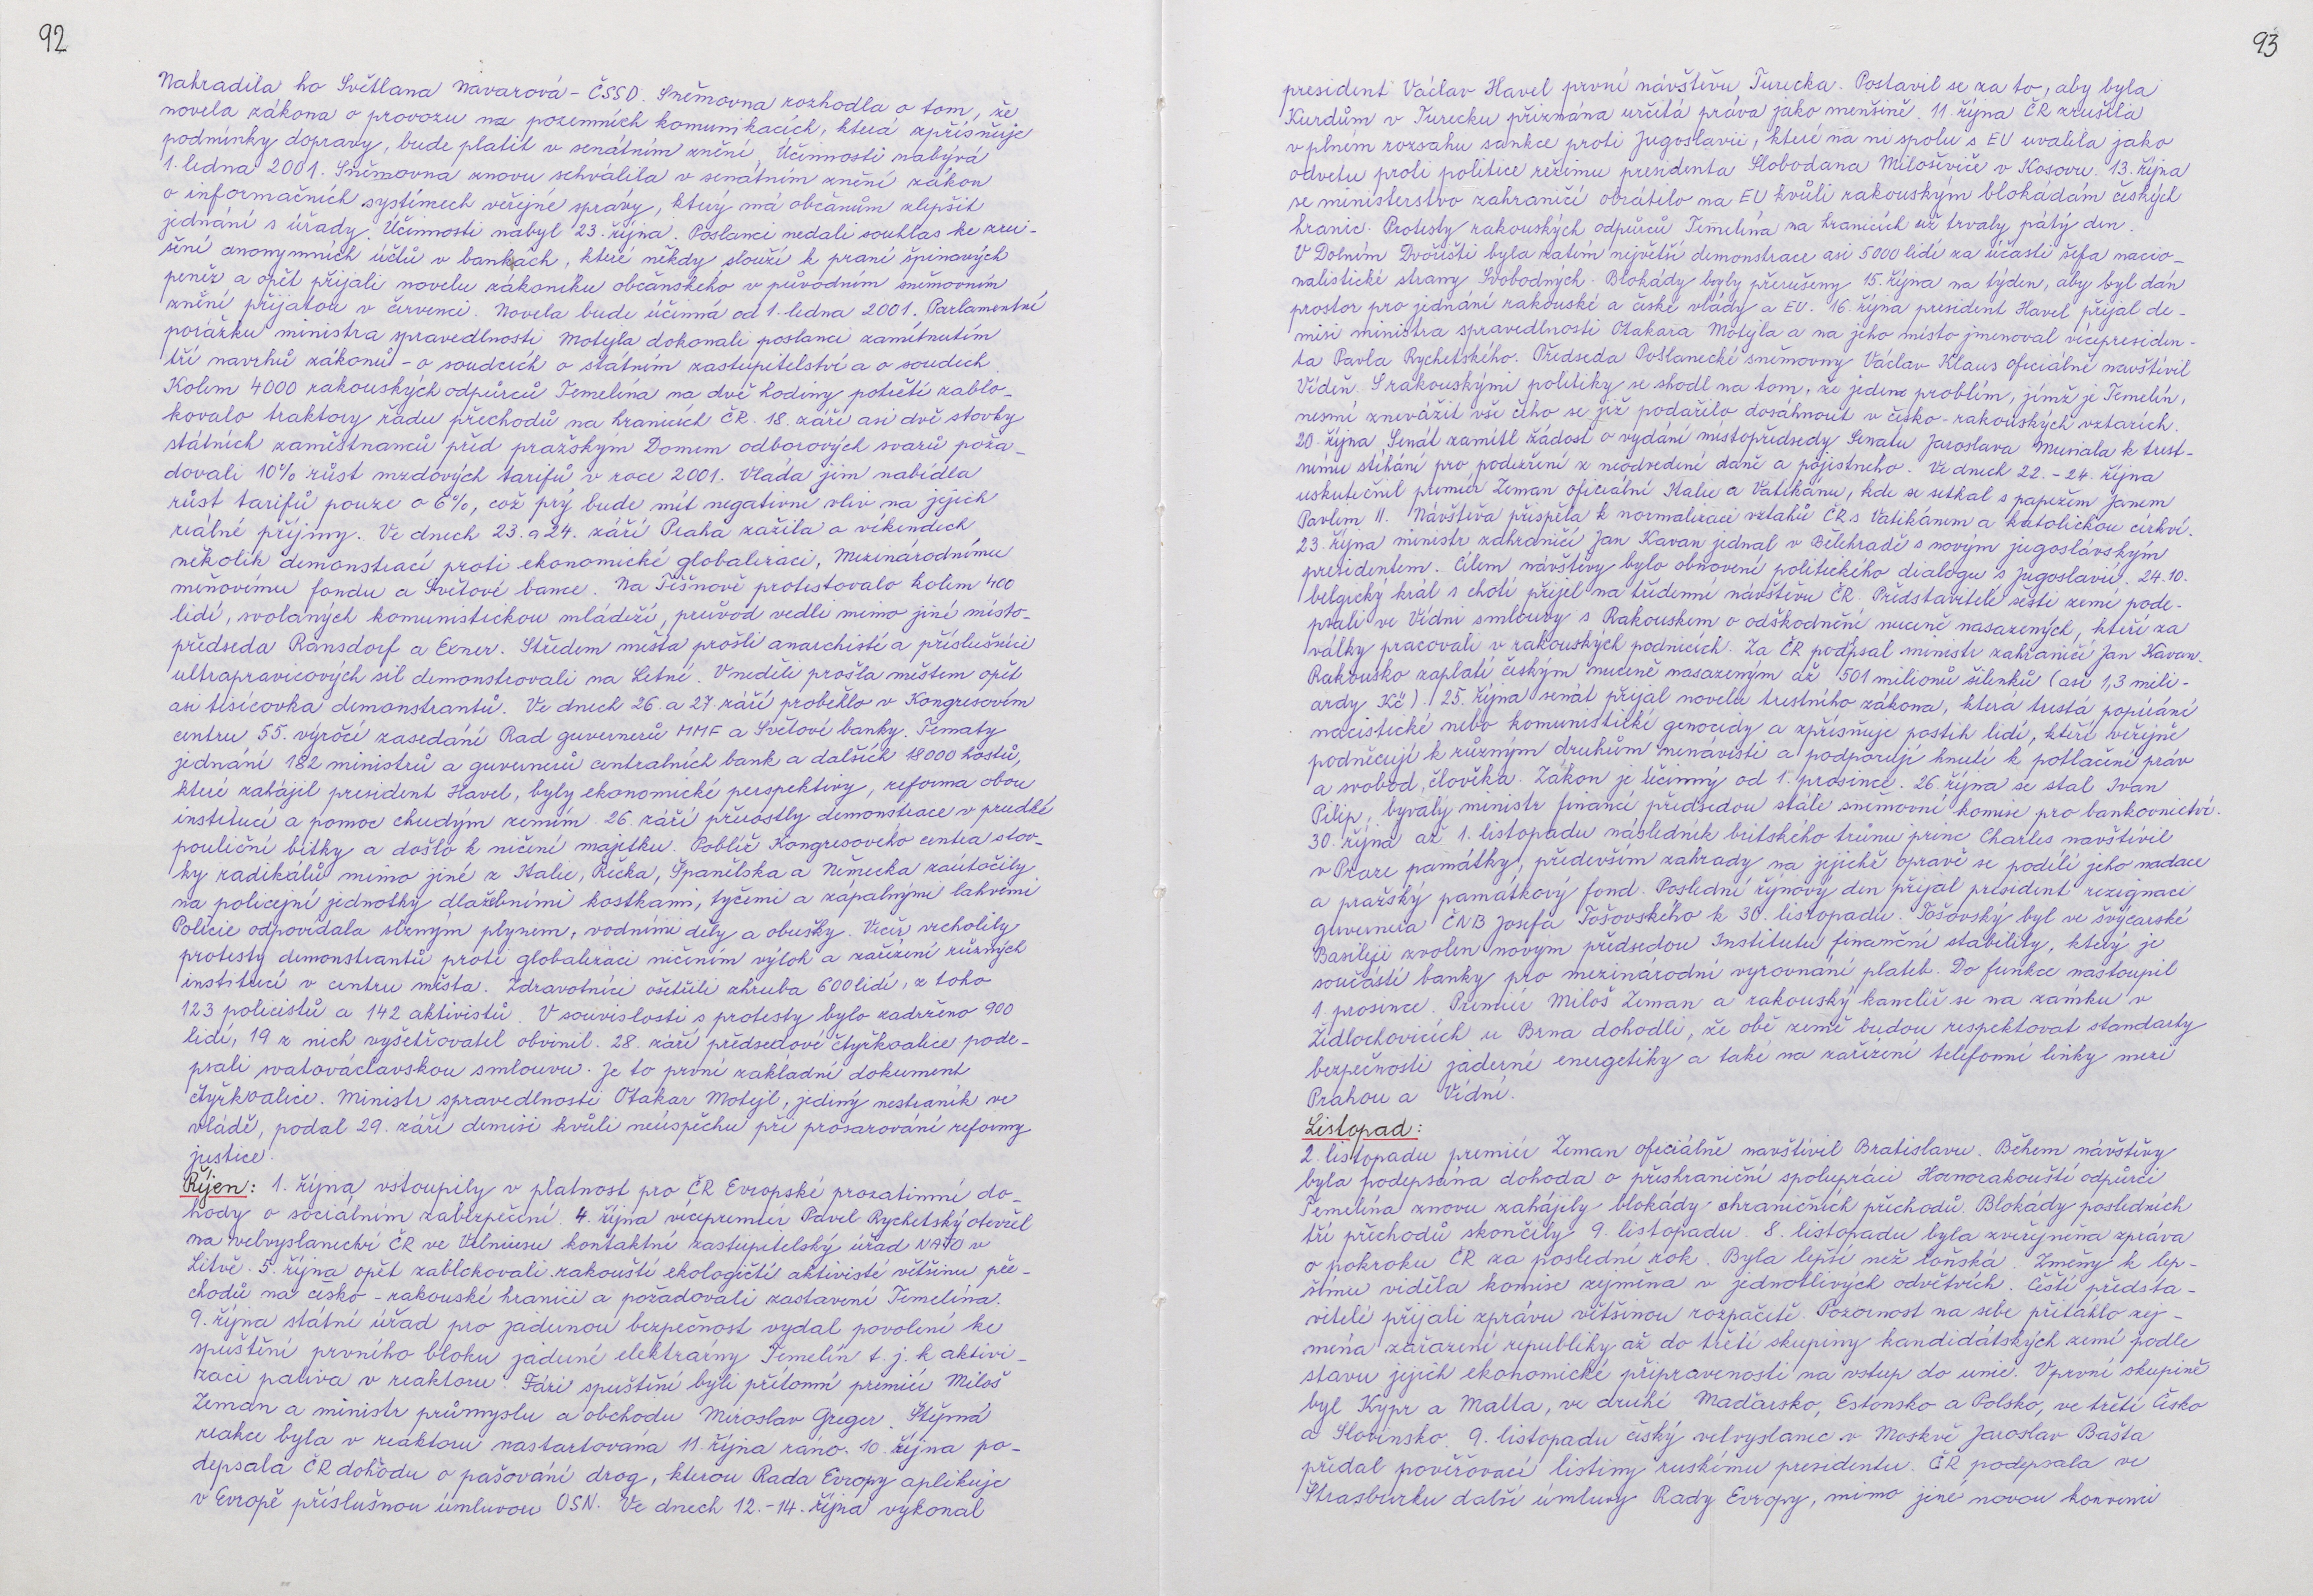 92
Nahradila ho Světlana Navarová - ČSSD. Sněmovna rozhodla o tom, že
novela zákona o provozu na pozemních komunikacích, která zpřísňuje
podmínky dopravy, bude platit v senátním znění. Účinnosti nabývá
1. ledna 2001. Sněmovna znovu schválila v senátním znění zákon
o informačních systémech veřejné správy, který má občanům zlepšit
jednání s úřady. Účinnosti nabyl 23. října. Poslanci nedali souhlas ke zru-
šení anonymních účtů v bankách, které někdy slouží k praní špinavých
peněz a opět přijali novelu zákoníku občanského v původním sněmovním
znění přijatou v červenci. Novela bude účinná od 1. ledna 2001. Parlamentní
porážku ministra spravedlnosti Motejla dokonali poslanci zamítnutím
tří navrhů zákonů - o soudcích o státním zastupitelství a o soudech.
Kolem 4000 rakouských odpůrců Temelína na dvě hodiny potřetí zablo-
kovalo traktory řadu přechodů na hranicích ČR. 18. září asi dvě stovky
státních zaměstnanců před pražským Domem odborových svazů poža-
dovali 10% růst mzdových tarifů v roce 2001. Vláda jim nabídla
růst tarifů pouze o 6%, což prý bude mít negativní vliv na jejich
reálné příjmy. Ve dnech 23. a 24. září Praha zažila o víkendech
několik demonstrací proti ekonomické globalizaci, Mezinárodnímu
měnovému fondu a Světové bance. Na Těšnově protestovalo kolem 400
lidí, svolaných komunistickou mládeží, průvod vedli mimo jiné místo-
předseda Ransdorf a Exner. Středem města prošli anarchisté a příslušníci
ultrapravicových sil demonstrovali na Letné. V neděli prošla městem opět
asi tisícovka demonstrantů. Ve dnech 26. a 27. září proběhlo v Kongresovém
centru 55. výročí zasedání Rad guvernérů MMF a Světové banky. Tematy
jednání 182 ministrů a guvernerů centrálních bank a dalších 18000 hostů,
které zahájil president Havel, byly ekonomické perspektivy, reforma obou
institucí a pomoc chudým zemím. 26. září přerostly demonstrace v prudké
pouliční bitky a došlo k ničení majetku. Poblíž Kongresového centra stov-
ky radikálů mimo jiné z Italie, Řecka, Španělska a Německa zaútočily
na policejní jednotky dlažebními kostkami, tyčemi a zápalnými lahvemi.
Policie odpovídala slzným plynem, vodními děly a obušky. Večer vrcholily
protesty demonstrantů proti globalizaci ničením výloh a zařízení různých
institucí v centru města. Zdravotníci ošetřili zhruba 600 lidí, z toho
123 policistů a 142 aktivistů. V souvislosti s protesty bylo zadrženo 900
lidí, 19 z nich vyšetřovatel obvinil. 28. září předsedové čtyřkoalice pode-
psali svatováclavskou smlouvu. Je to první základní dokument
čtyřkoalice. Ministr spravedlnosti Otakar Motejl, jediný nestraník ve
vládě, podal 29. září demisi kvůli neúspěchu při prosazování reformy
justice.
Říjen: 1. října vstoupily v platnost pro ČR Evropské prozatimní do-
hody o sociálním zabezpečení. 4. října vícepremiér Pavel Rychetský otevřel
na velvyslanectví ČR ve Vilniusu kontaktní zastupitelský úřad NATO v
Litvě. 5. října opět zablokovali rakouští ekologičtí aktivisté většinu pře-
chodů na česko-rakouské hranici a požadovali zastavení Temelína.
9. října státní úřad pro jadernou bezpečnost vydal povolení ke
spuštění prvního bloku jaderné elektrárny Temelín t. j. k aktivi-
zaci paliva v reaktoru. Fázi spuštění byli přítomni premiér Miloš
Zeman a ministr průmyslu a obchodu Miroslav Greger. Štěpná
reakce byla v reaktoru nastartována 11. října ráno. 10. října po-
depsala ČR dohodu o pašování drog, kterou Rada Evropy aplikuje
v Evropě příslušnou úmluvou OSN. Ve dnech 12.-14. října vykonal
93
president Václav Havel první návštěvu Turecka. Postavil se za to, aby byla
Kurdům v Turecku přiznána určitá práva jako menšině. 11. října ČR zrušila
v plném rozsahu sankce proti Jugoslavii, které na ni spolu s EU uvalila jako
odvetu proti politice režimu presidenta Slobodana Miloševiče v Kosovu. 13. října
se ministerstvo zahraničí obrátilo na EU kvůli rakouským blokádám českých
hranic. Protesty rakouských odpůrců Temelína na hranicích už trvaly pátý den.
V Dolním Dvořišti byla zatím největší demonstrace asi 5000 lidí za účasti šéfa nacio-
nalistické strany Svobodných. Blokády byly přerušeny 15. října na týden, aby byl dán
prostor pro jednání rakouské a české vlády a EU. 16. října president Havel přijal de-
misi ministra spravedlnosti Otakara Motejla a na jeho místo jmenoval vícepresiden-
ta Pavla Rychetského. Předseda Poslanecké sněmovny Václav Klaus oficiálně navštívil
Vídeň. S rakouskými politiky se shodl na tom, že jediné problém, jímž je Temelín,
nesmí znevážit vše čeho se již podařilo dosáhnout v česko-rakouských vztazích.
20. října Senát zamítl žádost o vydání místopředsedy Senatu Jaroslava Musiala k trest-
nímu stíhání pro podezření z neodvedení daně a pojistného. Ve dnech 22.-24. října
uskutečnil premiér Zeman oficiální Italie a Vatikánu, kde se setkal s papežem Janem
Pavlem II. Návštěva přispěla k normalizaci vztahů ČR s Vatikánem a katolickou církví.
23. října ministr zahraničí Jan Kavan jednal v Bělehradě s novým jugoslávským
presidentem. Cílem návštěvy bylo obnovení politického dialogu s Jugoslavií. 24.10.
belgický král s chotí přijel na třídenní návštěvu ČR. Představitelé šesti zemí pode-
psali ve Vídni smlouvy s Rakouskem o odškodnění nuceně nasazených, kteří za
války pracovali v rakouských podnicích. Za ČR podpsal ministr zahraničí Jan Kavan.
Rakousko zaplatí českým nuceně nasazeným až 501 milionů šilinků (asi 1,3 mili-
ardy Kč). 25. října senát přijal novelu trestního zákona, která trestá popírání
nacistické nebo komunistické genocidy a zpřísňuje postih lidí, kteří veřejně
podněcují k různým druhům nenávisti a podporují hnutí k potlačení práv
a svobod člověka. Zákon je účinný od 1. prosince. 26. října se stal Ivan
Pilip, bývalý ministr financí předsedou stálé sněmovní komise pro bankovnictví.
30. října až 1. listopadu následník britského trůnu princ Charles navštívil
v Praze památky, především zahrady na jejichž opravě se podílí jeho nadace
a pražský památkový fond. Poslední říjnový den přijal president rezignaci
guvernera ČNB Josefa Tošovského k 30. listopadu. Tošovský byl ve švýcarské
Basileji zvolen novým předsedou Institutu finanční stability, který je
součástí banky pro mezinárodní vyrovnání plateb. Do funkce nastoupil
1. prosince. Premiér Miloš Zeman a rakouský kancléř se na zámku v
Židlochovicích u Brna dohodli, že obě země budou respektovat standarty
bezpečnosti jáderné energetiky a také na zařízení telefonní linky mezi
Prahou a Vídní.
Listopad:
2. listopadu premiér Zeman oficiálně navštívil Bratislavu. Během návštěvy
byla podepsána dohoda o příshraniční spolupráci. Hornorakouští odpůrci
Temelína znovu zahájily blokády ohraničních přechodů. Blokády posledních
tří přechodů skončily 9. listopadu. 8. listopadu byla zveřejněna zpráva
o pokroku ČR za poslední rok. Byla lepší než loňská. Změny k lep-
šímu viděla komise zejména v jednotlivých odvětvích. Čeští předsta-
vitelé přijali zprávu většinou rozpačitě. Pozornost na sebe přitáhlo zej-
ména zařazení republiky až do třetí skupiny kandidátských zemí podle
stavu jejich ekonomické připravenosti na vstup do unie. V první skupině
byl Kypr a Malta, ve druhé Maďarsko, Estonsko a Polsko, ve třetí Česko
a Slovinsko. 9. listopadu český velvyslanec v Moskvě Jaroslav Bašta
předal pověřovací listiny ruskému presidentu. ČR podepsala ve
Štrasburku další úmluvy Rady Evropy, mimo jiné novou konvenci